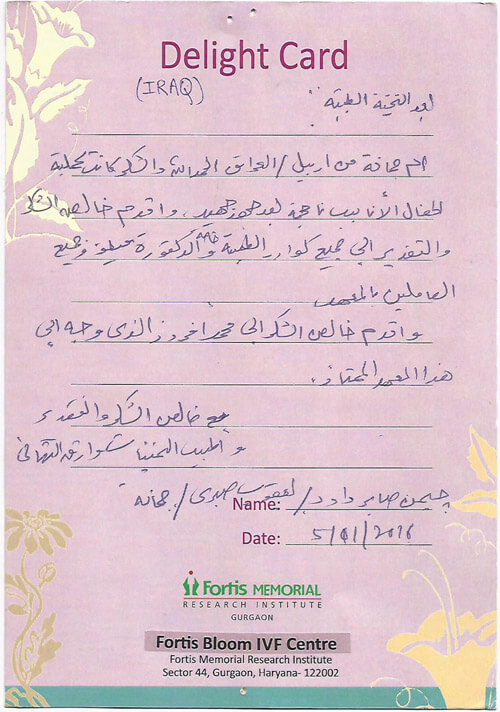 Delight Card
(IRAQ)
بعد التحية الطيبة
ام جمانة من اربيل / العراق الحمد لله والشكر كانت عملية
اطفال الأنابيب ناجحة بعد جهيد. واقدم خالص الشكر
والتقدير الى جميع كوادر الطبية الدكتورة وجميع
العاملين بالمعهد
واقدم خالص الشكر الى محمد افروز الذي وجه الى
هذا المعهد الممتاز.
مع خالص الشكر والتقدير
و اطيب التهاني
Name: جيمن صابر داود / يعقوب صبري / جمانة
Date: 5/01/2016
Fortis MEMORIAL
RESEARCH INSTITUTE
GURGAON
Fortis Bloom IVF Centre
Fortis Memorial Research Institute
Sector 44, Gurgaon, Haryana- 122002